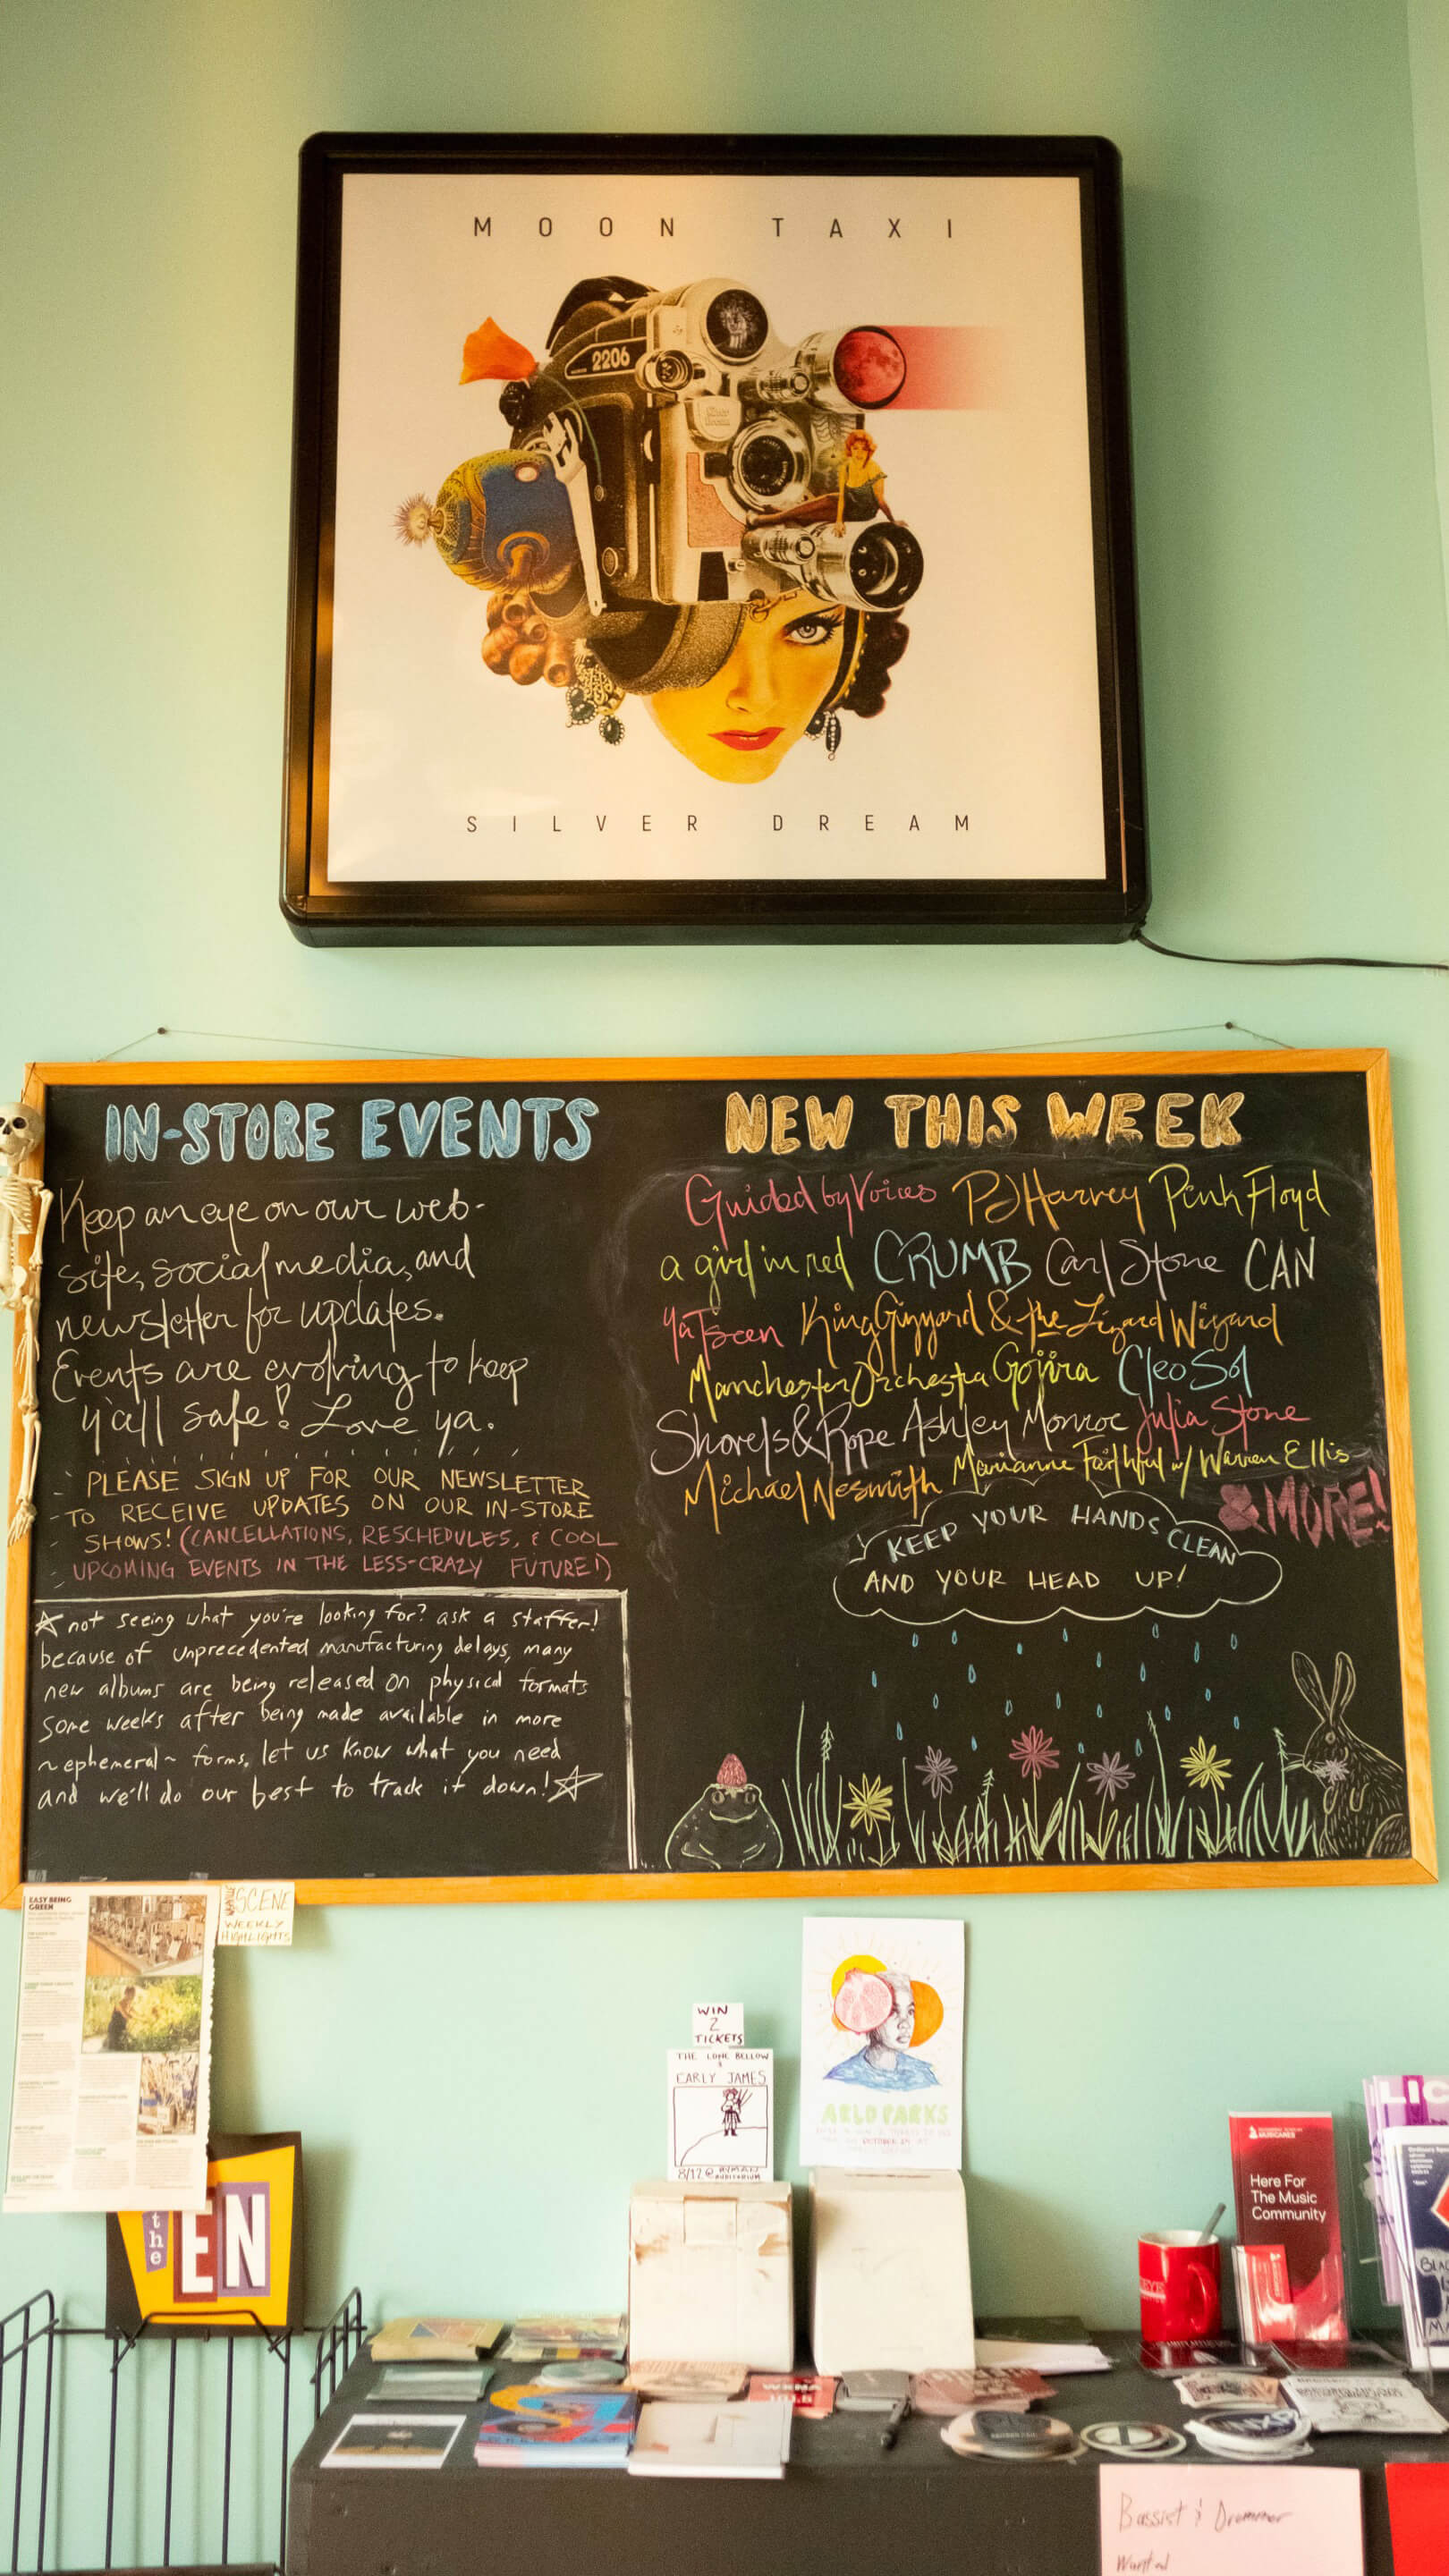 MOON TAXI
2206
SILVER DREAM
IN-STORE EVENTS
Keep an eye on our web-
site, social media, and
newsletter for updates.
Events are evolving to keep
y'all safe! Love ya.
PLEASE SIGN UP FOR OUR NEWSLETTER
TO RECEIVE UPDATES ON OUR IN-STORE
SHOWS! (CANCELLATIONS, RESCHEDULES, & COOL
UPCOMING EVENTS IN THE LESS-CRAZY FUTURE!)
not seeing what you're looking for? ask a staffer!
because of unprecedented manufacturing delays, many
new albums are being released on physical formats
some weeks after being made available in more
~ephemeral~ forms. let us know what you need
and we'll do our best to track it down!
NEW THIS WEEK
Guided by Voices PJ Harvey Pink Floyd
a girl in red CRUMB Carl Stone CAN
YaTseen King Gizzard & the Lizard Wizard
Manchester Orchestra Gojira Cleo Sol
Shovels & Rope Ashley Monroe Julia Stone
Michael Nesmith Marianne Faithful w/ Warren Ellis
& MORE!
KEEP YOUR HANDS CLEAN
AND YOUR HEAD UP!
EASY BEING
GREEN
SCENE
WEEKLY
HIGHLIGHTS
WIN
2
TICKETS
THE LONE BELLOW
&
EARLY JAMES
8/12 @ RYMAN
AUDITORIUM
ARLO PARKS
the
EN
MUSICARES
Here For
The Music
Community
WXNA
Bassist & Drummer
Wanted